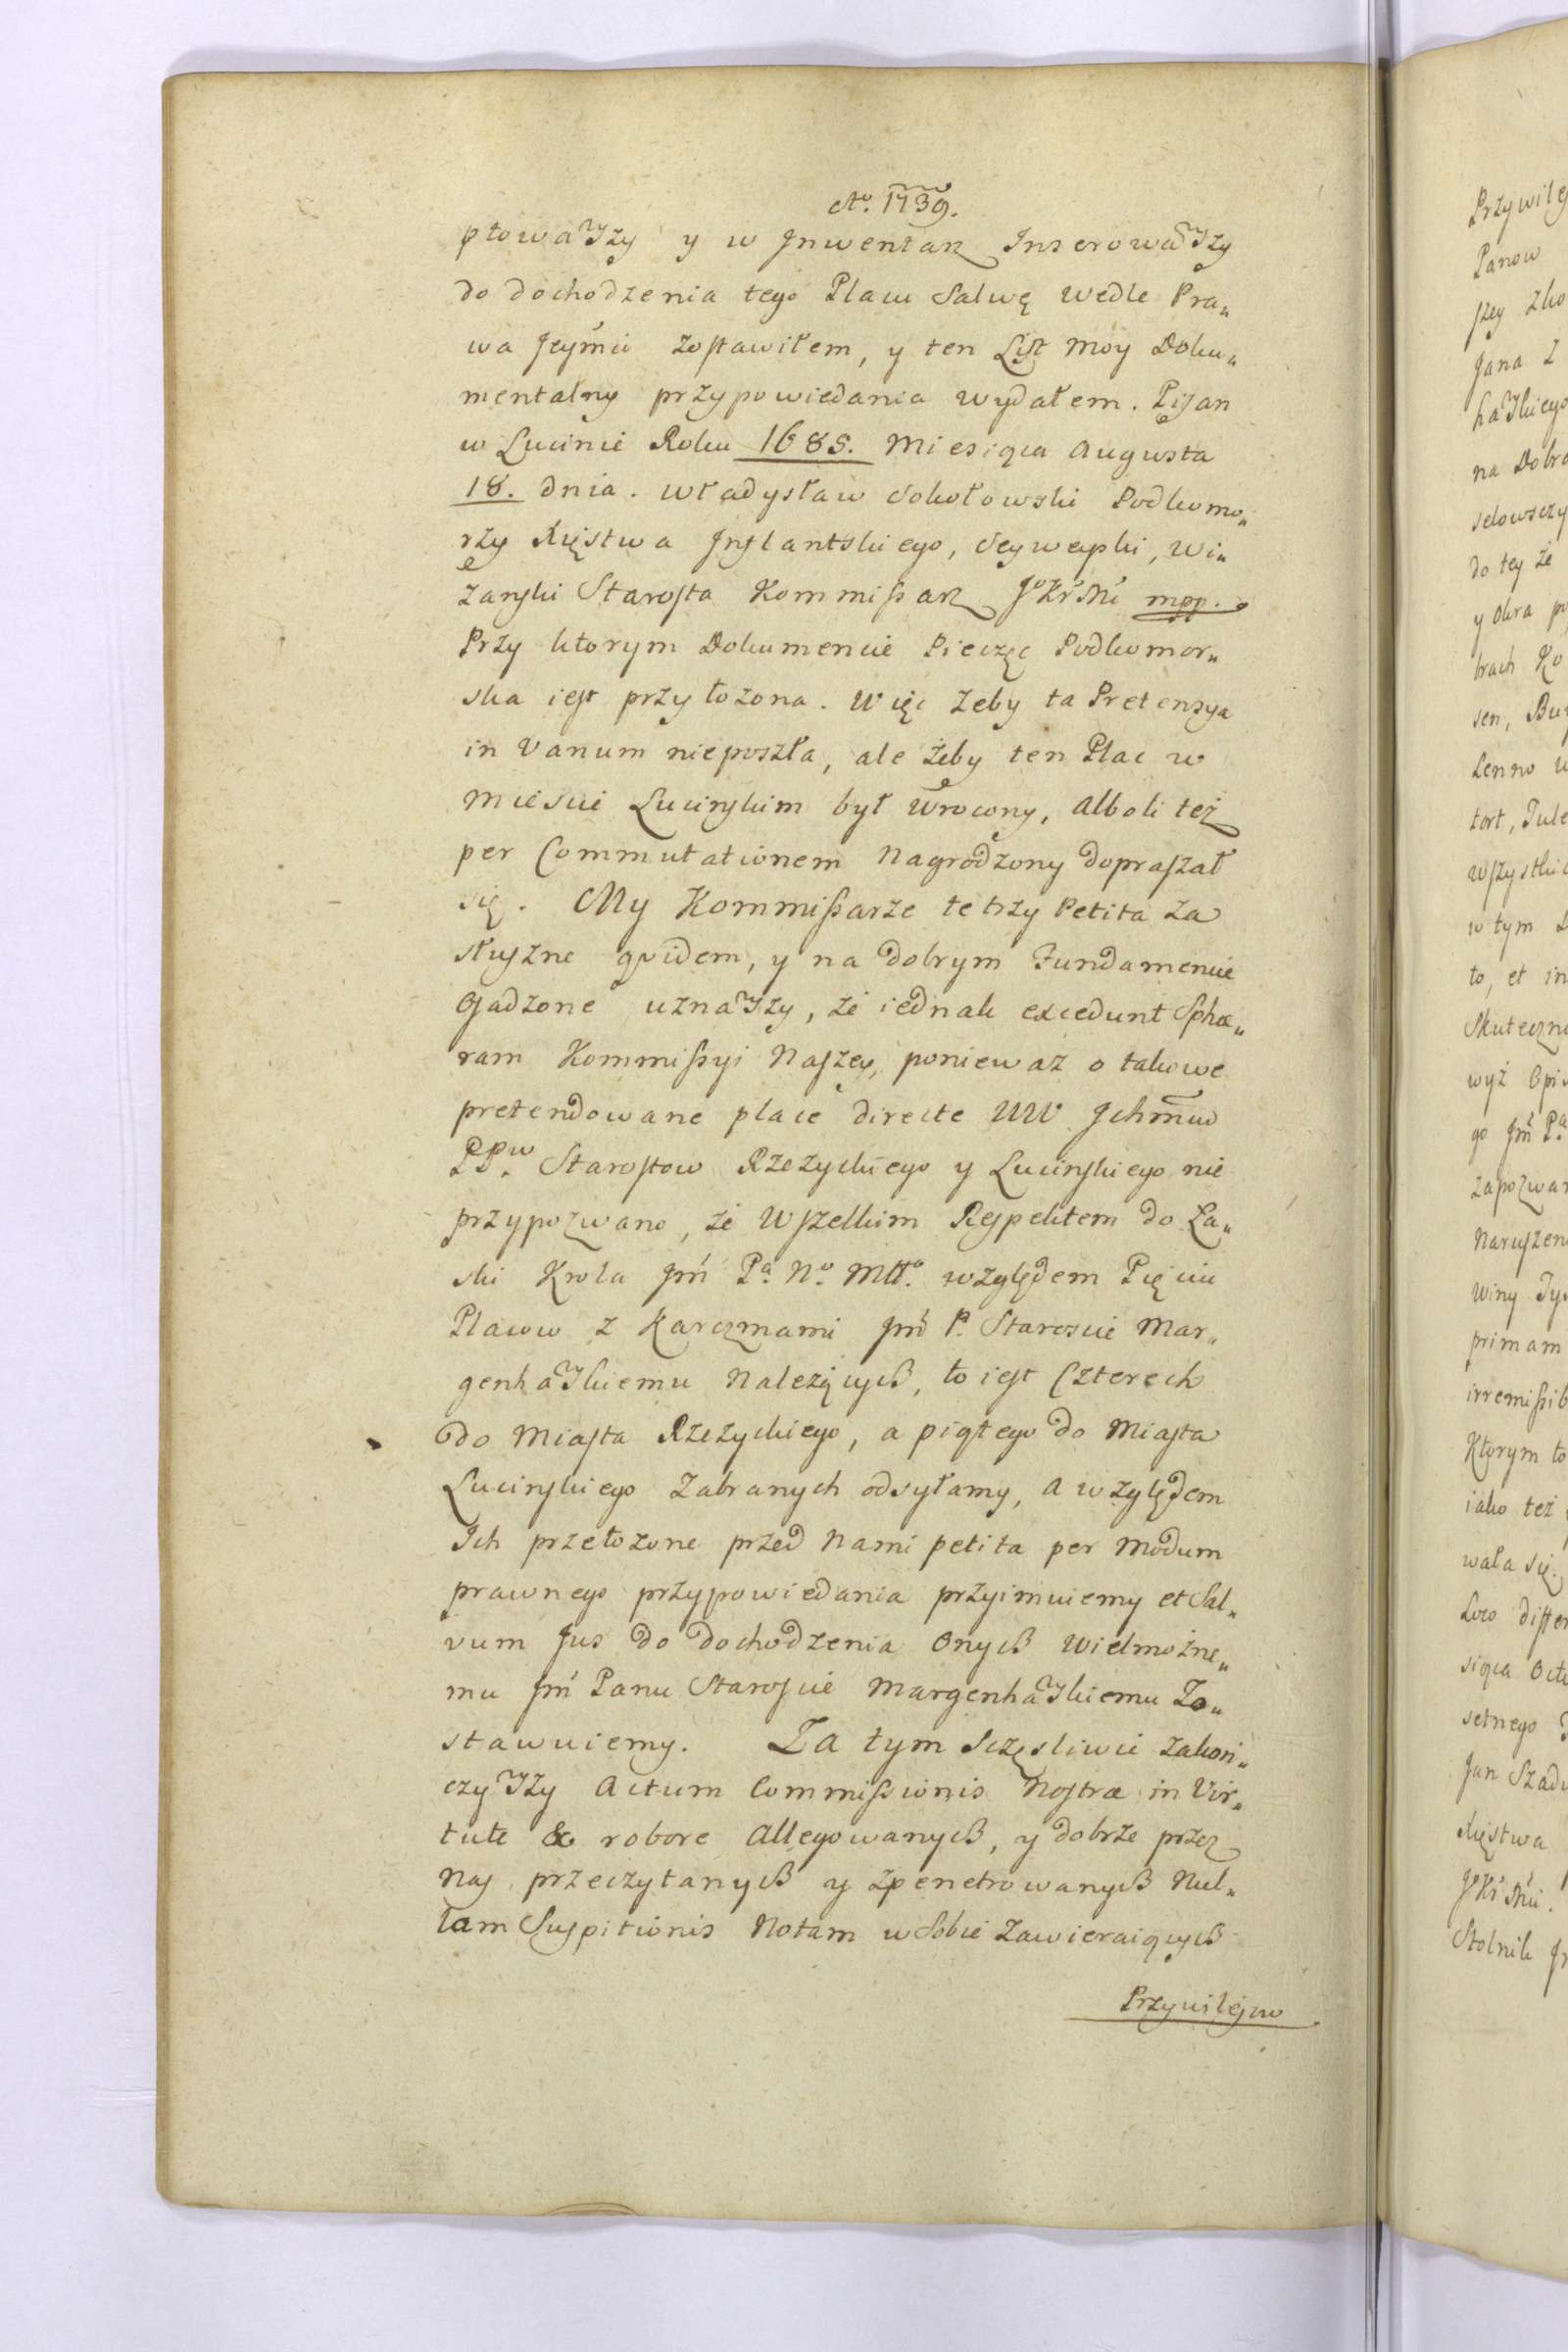 Ao. 1739.
ptowawszy y w Jnwentarz Jnserowawszy
do dochodzenia tego Placu Salwę wedle Pra„
wa Jeymći zostawiłem, y ten List moy Doku„
mentalny przypowiedania wydałem. Pisan
w Lucinie Roku 1685. Miesiąca Augusta
18. dnia. Władysław Sokołowski Podkomo„
rzy Xięstwa Jnflantskiego, Seyweyski, Wi„
zanski Starosta Kommissarz JoKrMći mpp.
Przy ktorym Dokumencie Pieczęc Podkomor„
ska iest przyłozona. Więc zeby ta Pretensya
in Vanum nieposzła, ale żeby ten Plac w
Miescie Lucinskim był wrocony, alboli też
per Commutationem nagrodzony dopraszał
się. My Kommissarze te trzy Petita za
słuszne qvidem, y na dobrym Fundamencie
osadzone uznawszy, że iednak excedunt Sphæ„
ram Kommissyi Naszey, poniewaz o takowe
pretendowane place directe WW Jchmćiow
PPw. Starostow Rzezyckiego y Lucinskiego nie
przypozwano, że Wszelkim Respektem do Ła„
ski Krola Jmći Pa. No. Mttº. względem Pięciu
Placow z Karczmami Jmći P. Staroscie Mar„
genhawskiemu Nalezących, to iest Czterech
do Miasta Rzezyckiego, a piątego do Miasta
Lucinskiego Zabranych odsyłamy, a względem
Ich przełozone przed Nami petita per Modum
prawnego przypowiedania przyimuiemy et Sal„
vum Jus do dochodzenia Onych Wielmożne„
mu Jmći Panu Staroscie Margenhawskiemu Zo„
stawuiemy. Za tym Sczęsliwie zakoń„
czywszy Actum Commissionis Nostræ in Vir„
tute & robore Allegowanych, y dobrze przez
Nas przeczytanych y zpenetrowanych Nul„
lam Suspitionis Notam w Sobie Zawieraiących
Przywilejow
Przywilej
Panow
szey
Jana Z
hawskiego
na Dobra
selowszczy
do tey że
y
brach Ko
sen,
Lenno
tort,
wszystkie
w tym
to, et in
Skuteczn
wyż Opis
go Jmći Pa
zapozwan
Naruszen
winy
primam
irremissib
Ktorym to
iako też
wała się.
Loco
siąca Octo
setnego
Jan
Xięstwa
JoKrMći.
Stolnik